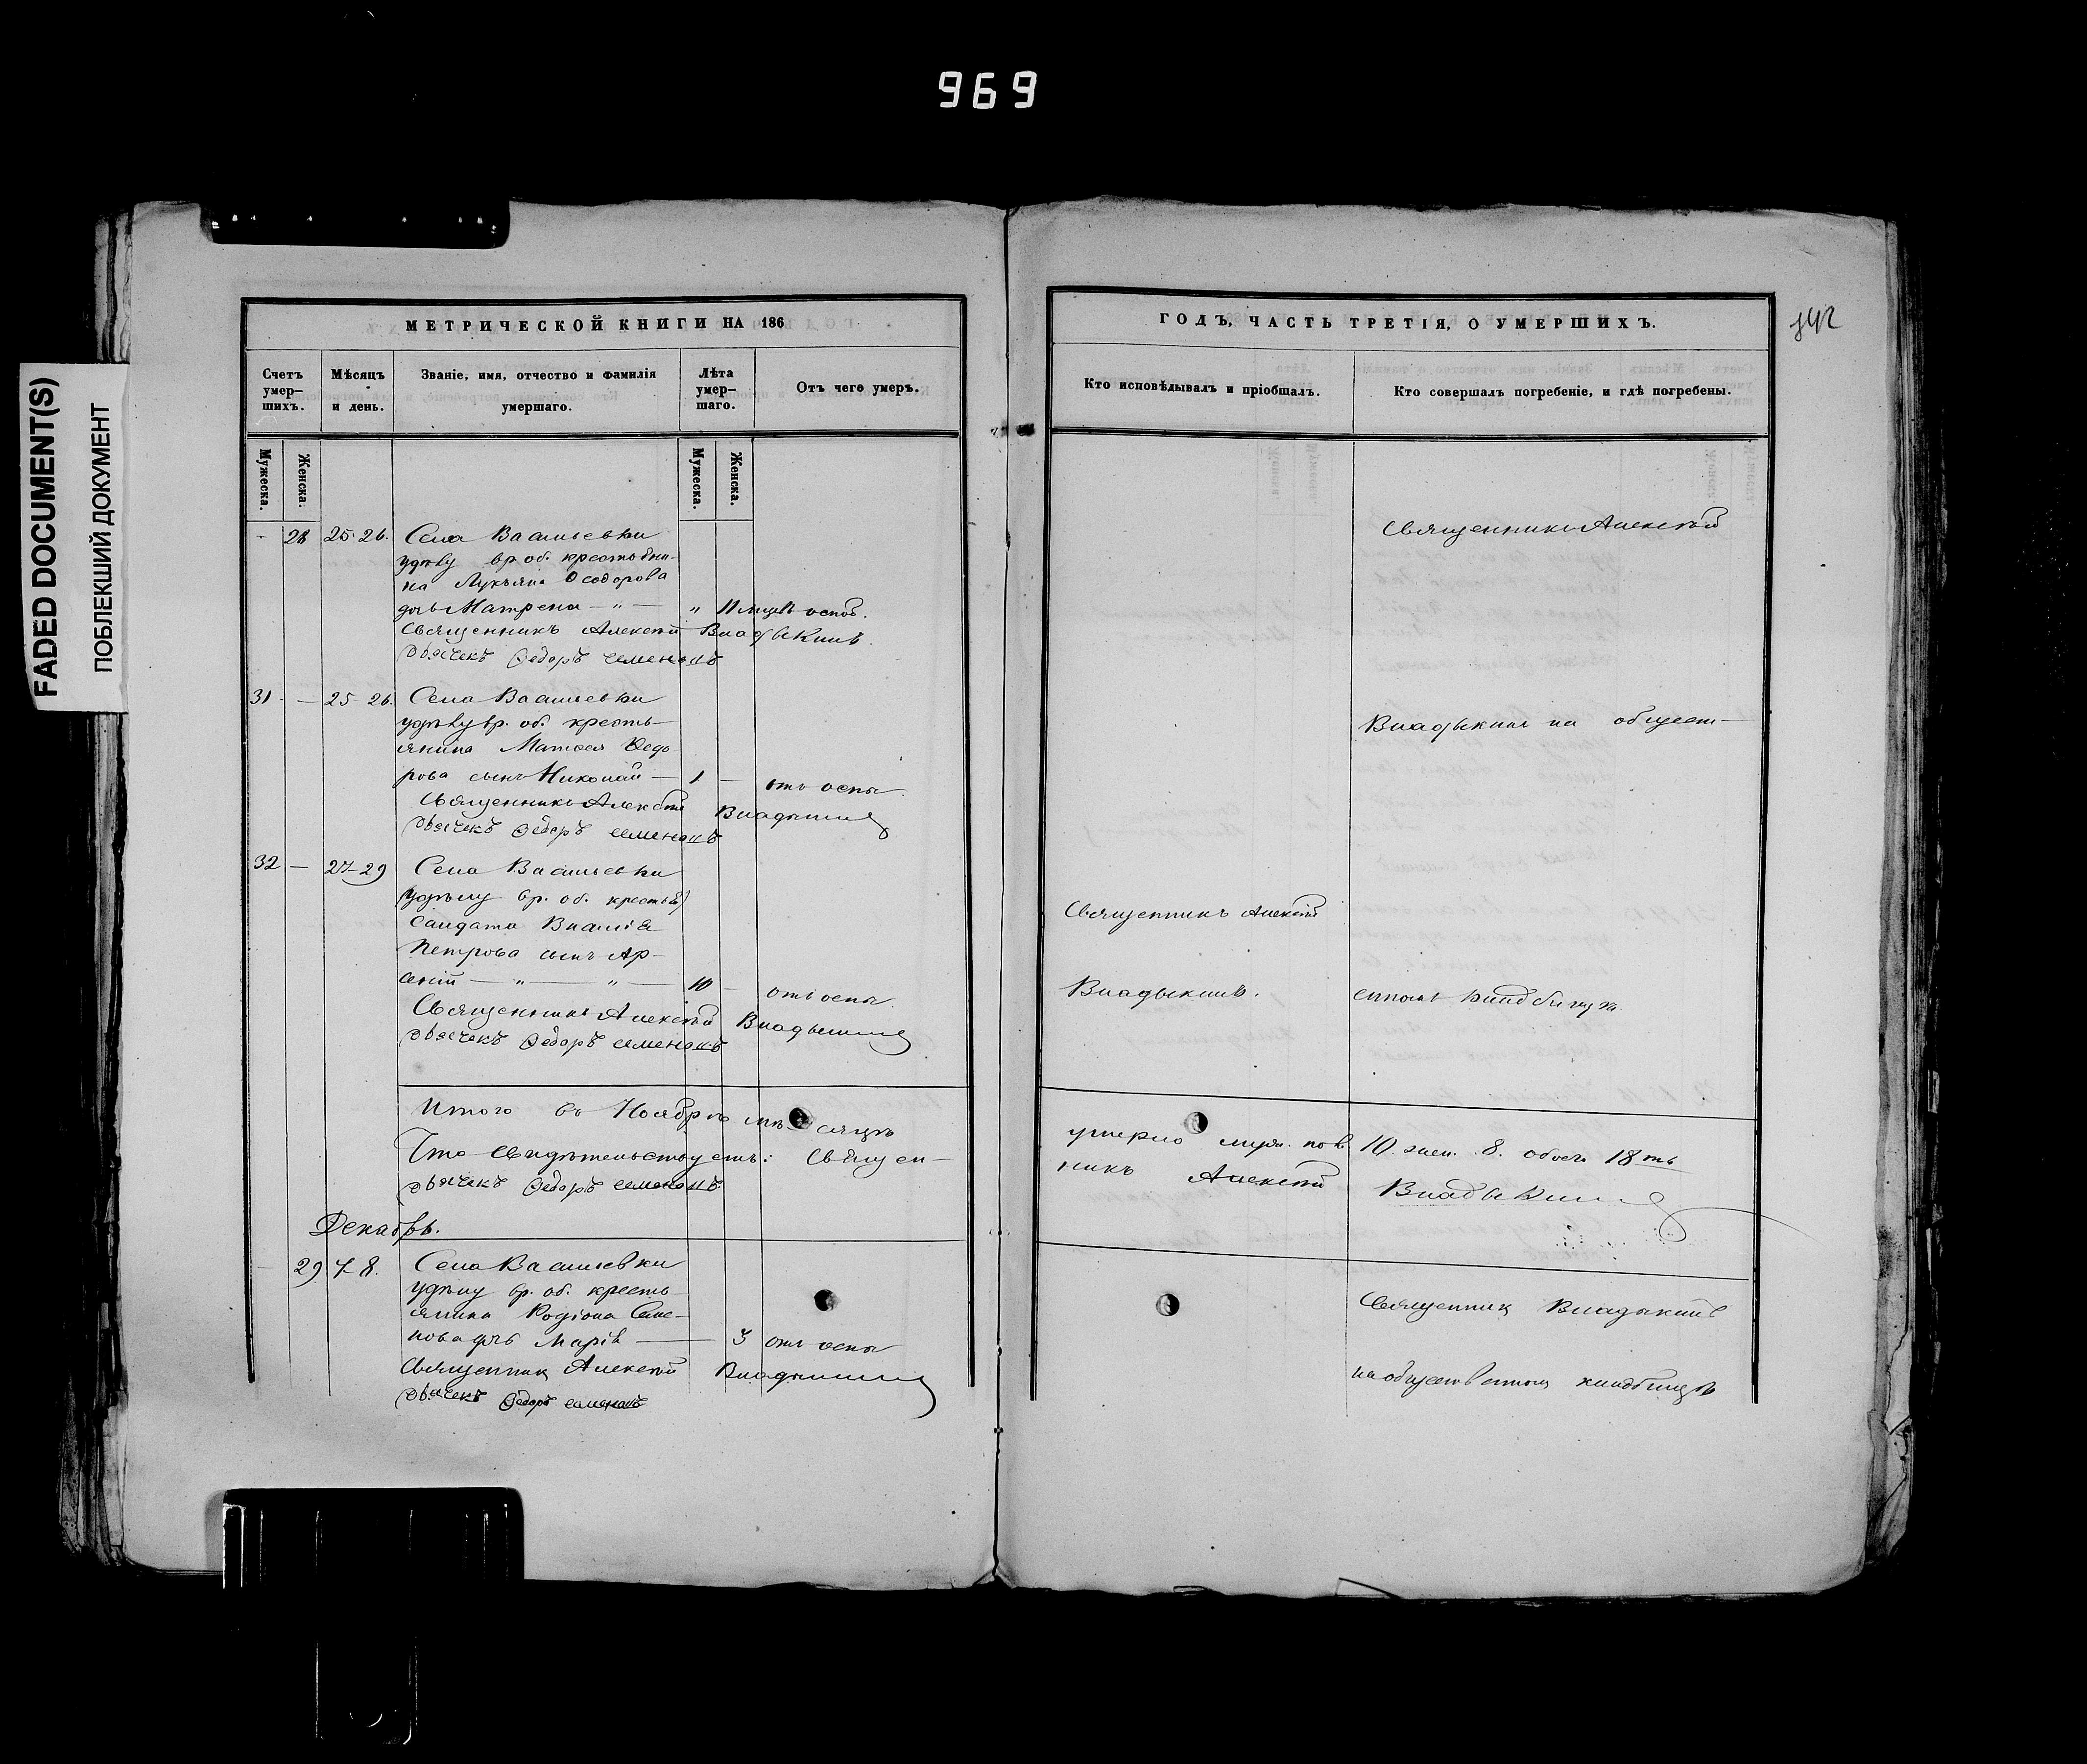 969
FADED DOCUMENT(S)
ПОБЛЕКШИЙ ДОКУМЕНТ
МЕТРИЧЕСКОЙ КНИГИ НА 186
Счетъ умер-шихъ.
Мѣсяцъ и день.
Званіе, имя, отчество и фамилія умершаго.
Лѣта умер-шаго.
Отъ чего умеръ.
Мужеска.
Женска.
Мужеска.
Женска.
28 25-26. Села Васильевки
удѣлу вр. об. крестьяни-
на Лукьяна Ѳеодорова
дочь Матрена — „ — „ 11 мцъ оспой.
Священникъ Алексѣй Владыкинъ.
Дьячекъ Ѳедоръ Семеновъ
31 — 25 26. Села Васильевки
удѣлу вр. об. кресть-
янина Матвея Ѳедо
рова сынъ Николай — 1 — отъ оспы
Священникъ Алексѣй Владыкинъ
Дьячекъ Ѳедоръ Семеновъ
32 — 27-29 Села Васильевки
вр. об. крестьян
Салдата Василія
Петрова сынъ Ар-
сеній — „ — „ — 10 — отъ оспы.
Священникъ Алексѣй Владыкинъ
Дьячекъ Ѳедоръ Семеновъ
Итого въ Ноябрѣ мѣсяцѣ
Что свидѣтельствуемъ: Священ-
Дьячекъ Ѳедоръ Семеновъ
Декабрь.
29 7-8. Села Васильевки
вр. об. кресть-
янина Родіона Семе-
нова дочь Марія — 3 отъ оспы
Священникъ Алексѣй Владыкинъ
Дьячекъ Ѳедоръ Семеновъ
ГОДЪ, ЧАСТЬ ТРЕТІЯ, О УМЕРШИХЪ.
142
Кто исповѣдывалъ и пріобщалъ.
Кто совершалъ погребеніе, и гдѣ погребены.
Священникъ Алексѣй
Владыкинъ на общест-
Священникъ Алексѣй
Владыкинъ. венномъ кладбищѣ.
умерло муж. пола 10. жен. 8. обоего 18ть
никъ Алексѣй Владыкинъ
Священникъ Владыкинъ
на общественномъ кладбищѣ